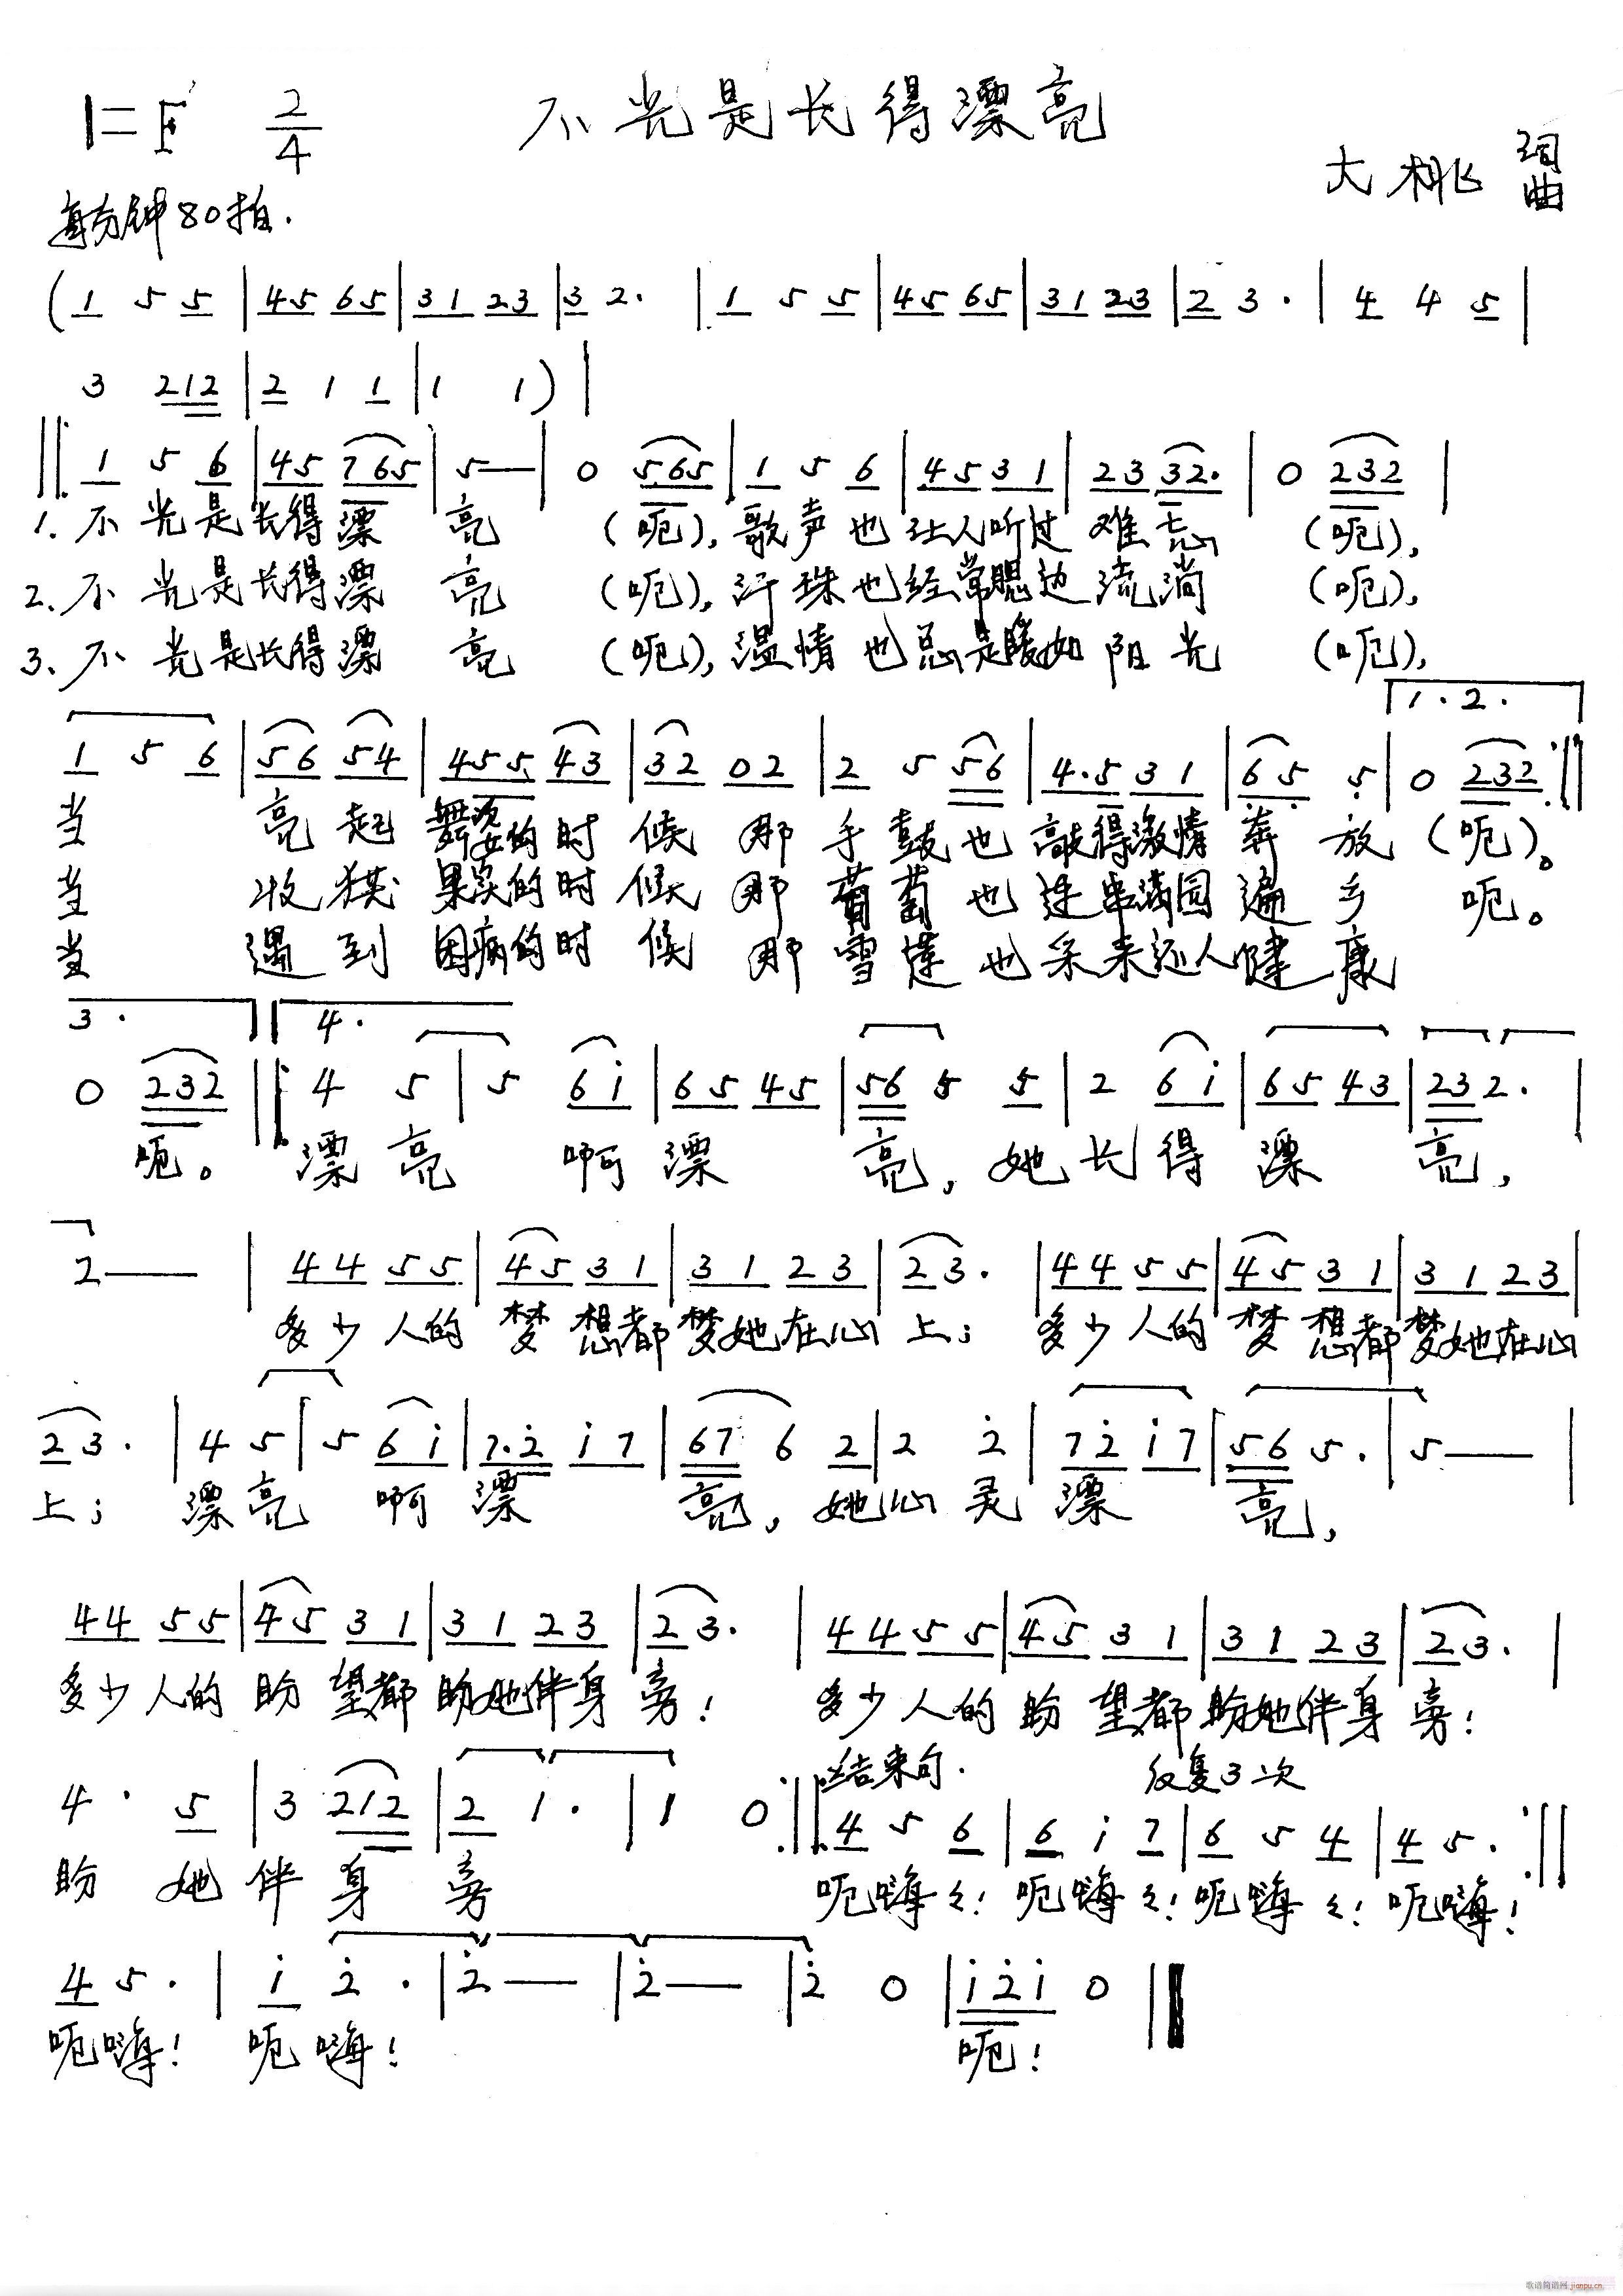 1=F 2/4 不光是长得漂亮
大桃 词曲
每分钟80拍.
(1 5 5 | 45 65 | 31 23 | 3 2. | 1 5 5 | 45 65 | 31 23 | 2 3. | 4 4 5 |
3 212 | 2 1 1 | 1 1) |
||: 1 5 6 | 45 765 | 5— | 0 565 | 1 5 6 | 45 31 | 23 32. | 0 232 |
1. 不光是长得漂 亮 (呃), 歌声也让人听过难忘 (呃),
2. 不光是长得漂 亮 (呃), 汗珠也经常腮边流淌 (呃),
3. 不光是长得漂 亮 (呃), 温情也总是暖如阳光 (呃),
1.2.
1 5 6 | 56 54 | 455 43 | 32 02 | 2 5 56 | 4.5 31 | 6̣5̣ 5̣ | 0 232 :||
当 亮起舞姿的时候 那手鼓也敲得激情奔放 (呃)。
当 收获果实的时候 那葡萄也连串满园遍乡 呃。
当 遇到困病的时候 那雪莲也采来还人健康
3. 4.
0 232 ||: 4 5 | 5 6i | 65 45 | 56 5 5 | 2 6i | 65 43 | 23 2. |
呃。 漂亮 啊漂 亮, 她长得漂 亮,
2— | 44 55 | 45 31 | 31 23 | 23. | 44 55 | 45 31 | 31 23 |
多少人的梦想都梦她在心上; 多少人的梦想都梦她在心
23. | 4 5 | 5 6i | 7.2̇ i7 | 67 6 2 | 2 2̇ | 72̇ i7 | 56 5. | 5— |
上; 漂亮 啊漂 亮, 她心灵漂 亮,
44 55 | 45 31 | 31 23 | 23. | 44 55 | 45 31 | 31 23 | 23. |
多少人的盼望都盼她伴身旁! 多少人的盼望都盼她伴身旁!
结束句. 反复3次
4. 5 | 3 212 | 2 1. | 1 0 :||: 4 5 6 | 6 i 7 | 6 5 4 | 4 5. :||
盼她伴身旁 呃嗨々! 呃嗨々! 呃嗨々! 呃嗨!
4 5. | i 2̇. | 2̇— | 2̇— | 2̇ 0 | i2̇i 0 ||
呃嗨! 呃嗨! 呃!
歌谱简谱网 jianpu.cn